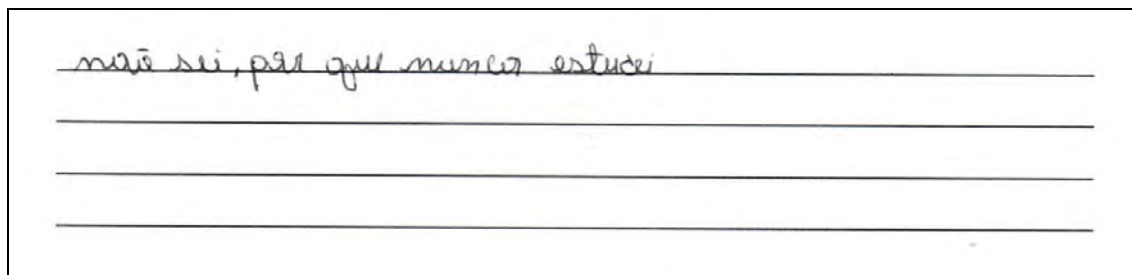 não sei, por que nunca estudei